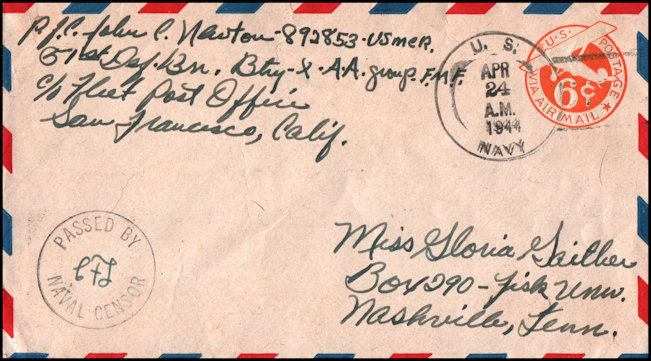 P.F.C. John C. Newton-892853-USMCR.
51st Def. Bn. Btry-X-A.A. group. F.M.F.
c/o Fleet Post Office
San Francisco, Calif.
U. S.
APR
24
A.M.
1944
NAVY
U.S. POSTAGE
6¢
VIA AIR MAIL
PASSED BY
NAVAL CENSOR
Miss Gloria Gaither
Box 290-Fisk Univ.
Nashville, Tenn.